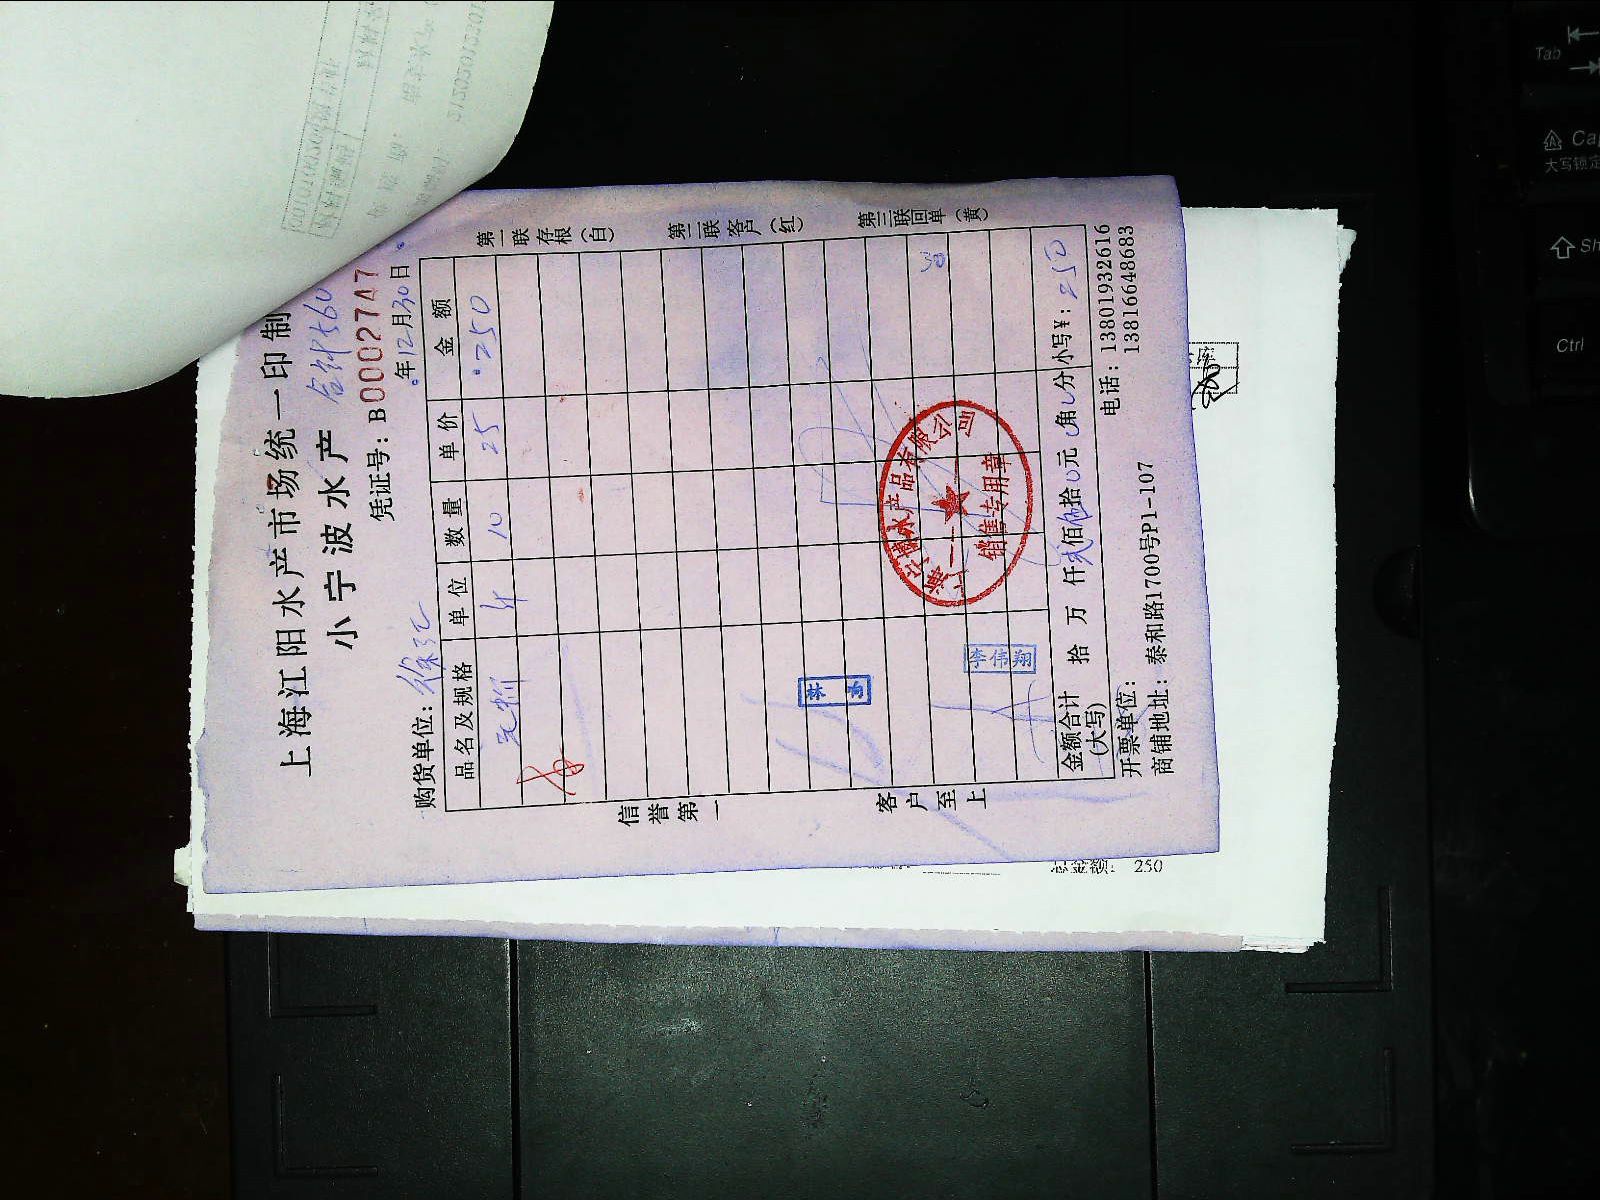 上海江阳水产市场统一印制
小宁波水产
合计560
凭证号：B0002747
购货单位：徐汇
年12月30日
品名及规格 单位 数量 单价 金额
斤 10 25 250
30
金额合计(大写) 拾 万 仟 贰佰伍拾0元0角0分 小写¥：250
开票单位：
电话：13801932616
13816648683
商铺地址：泰和路1700号P1-107
第一联存根（白）
第二联客户（红）
第三联回单（黄）
信誉第一
客户至上
水产品有限公司
销售专用章
李伟翔
林
总金额： 250
Tab
Cap
大写锁定
Sh
Ctrl